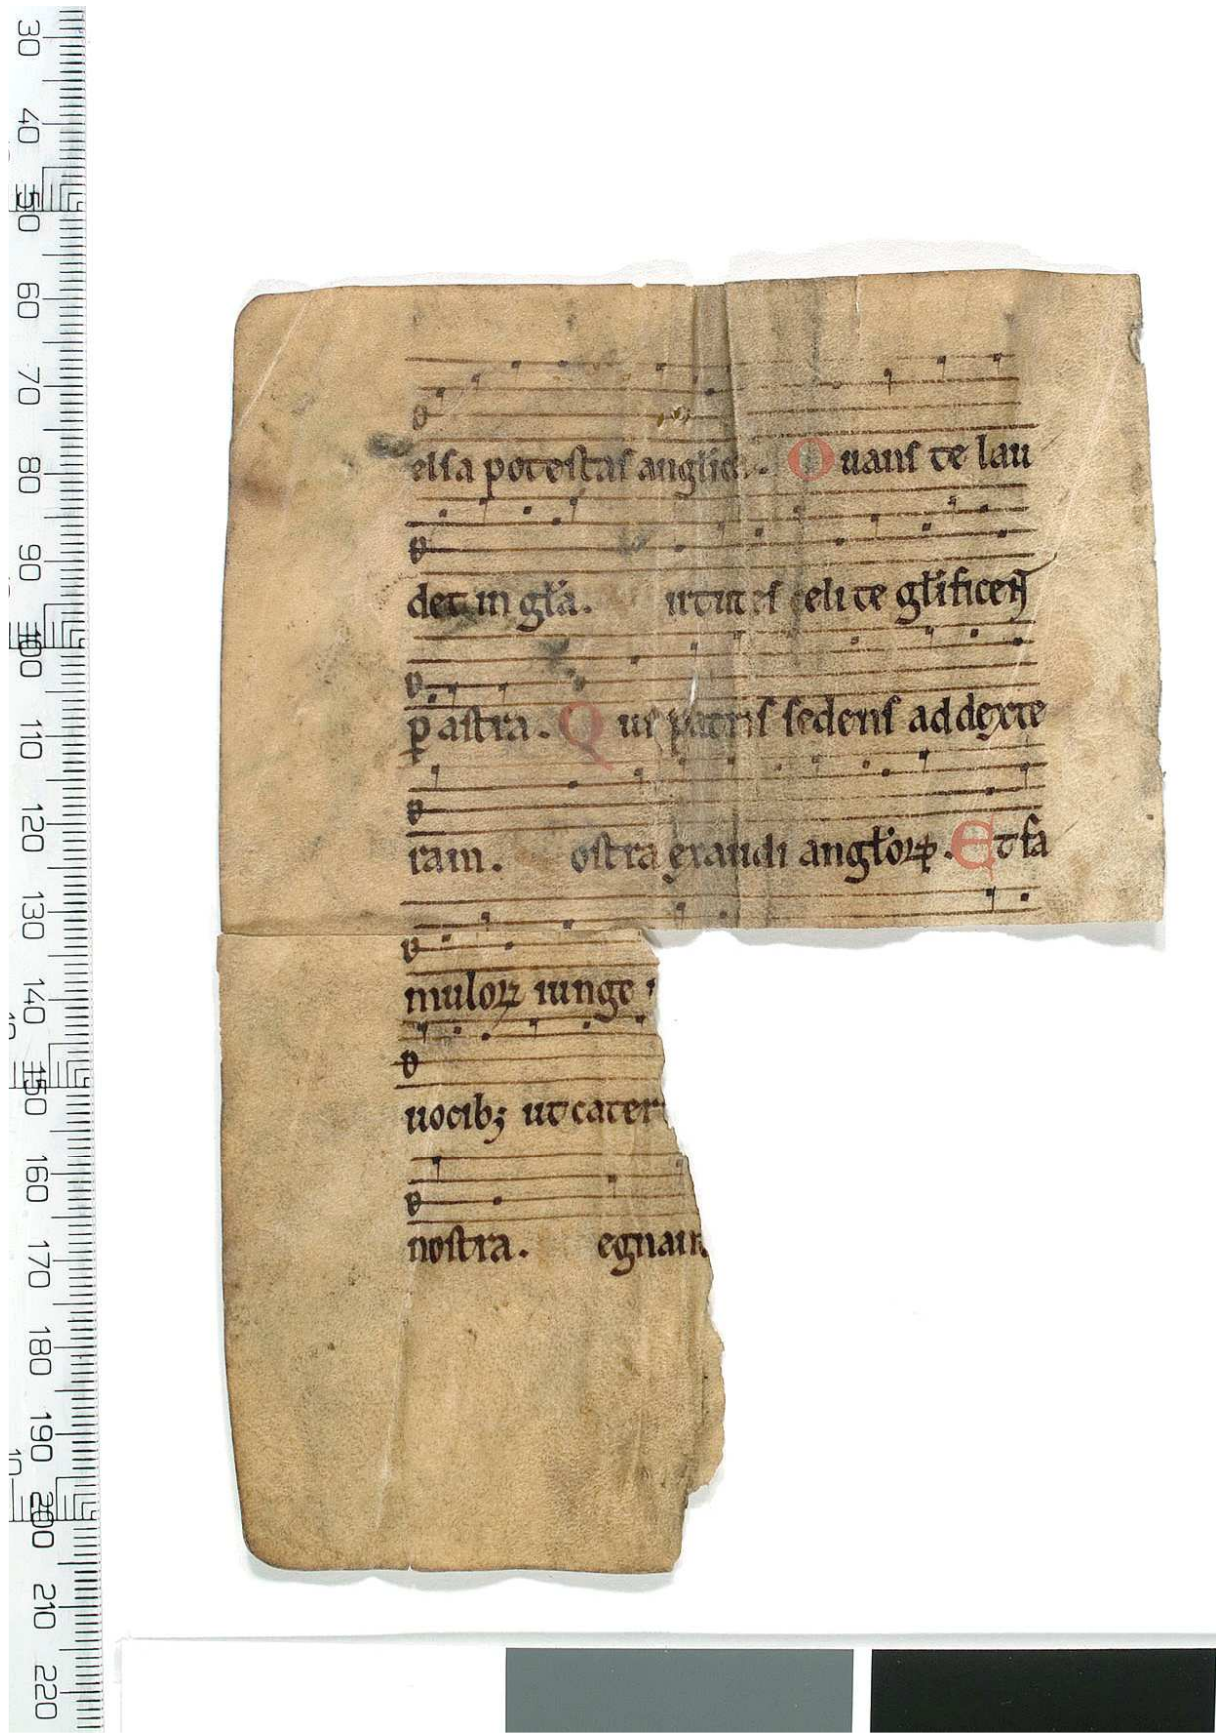 30
40
50
60
70
80
90
100
110
120
130
140
150
160
170
180
190
200
210
220
elsa potestas anglica. Ouans te lau
det in gl̄a. irtutes celi te gl̄ificen̄t
p̄ astra. Qui patris sedens ad dexte
ram. ostra exaudi angl̄oꝝ. Et fa
muloꝝ iunge
uocibꝫ ut cater
nostra. egnam